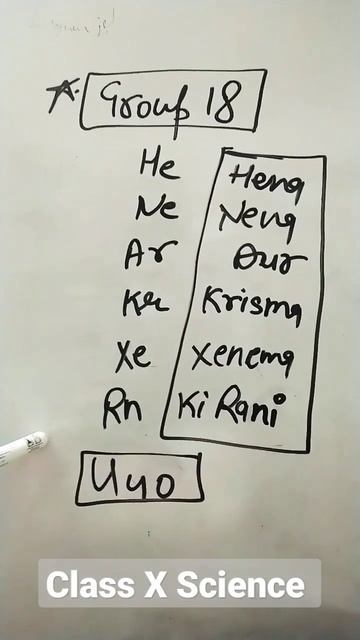 Group 18
He Hena
Ne Nena
Ar Aur
Kr Krisma
Xe Xenema
Rn Ki Rani
Uuo
Class X Science